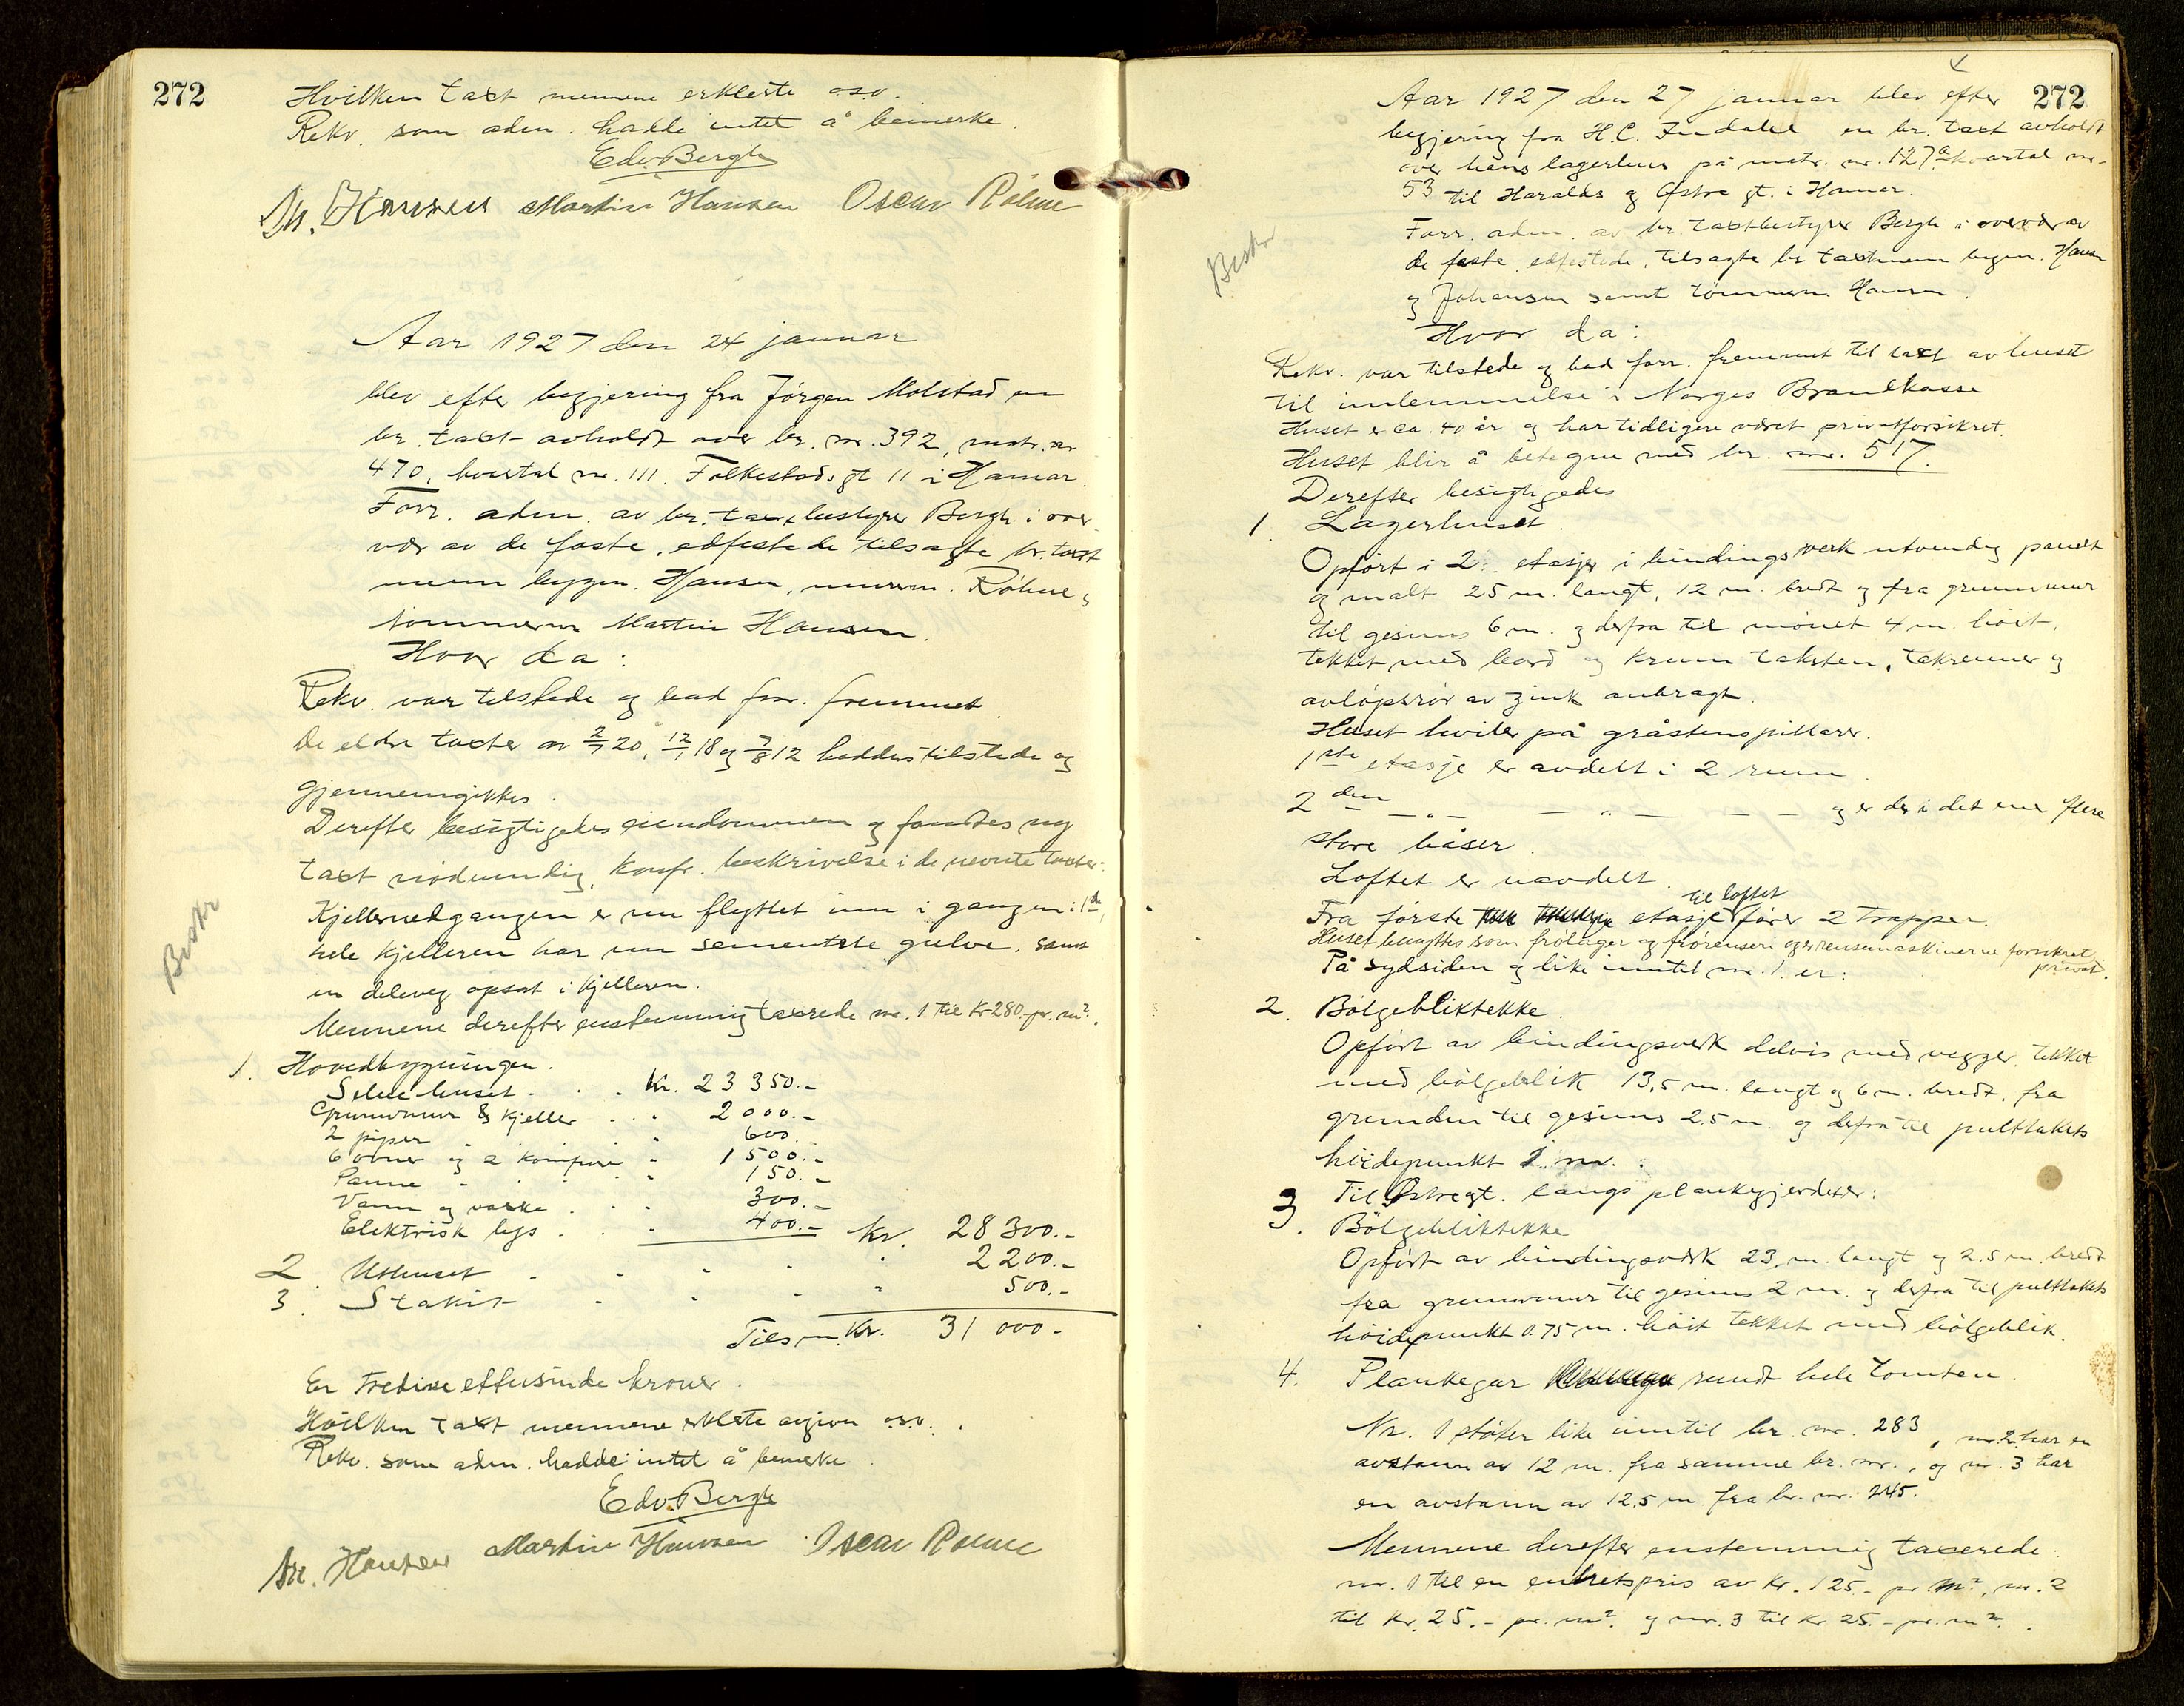 272
Hvilken taxt mennene erklerte osv.
Rekv. som aden. hadde intet å bemerke.
Edv. Bergh
M. Hansen Martin Hansen Oscar Röhne
Aar 1927 den 24 januar
blev efter begjering fra Jörgen Molstad en
br. taxt avholdt over br. nr. 392, matr. nr
470, kvartal nr. 111. Folkestadsgt 11 i Hamar.
Forr. aden. av br. taxtbestyrer Bergh i over
vær av de faste, edfestede tilsagte br. taxt
menn byggm. Hansen, murerm. Röhne og
tömmerm Martin Hansen.
Hvor da:
Rekv. var tilstede og bad forr. fremmet
De eldre taxter av 2/7 20, 12/1 18 og 7/8 12 haddes tilstede og
gjennemgikkes.
Derefter besigtigedes eiendommen og fandtes ny
taxt nödvendig, konfr. beskrivelse i de nevnte taxter.
Beskr
Kjellernedgangen er nu flyttet inn i gangen i 1ste,
hele kjelleren har nu sementste gulve, samt
en deleveg opsat i kjelleren.
Mennene derefter enstemmig taxrede nr. 1 til Kr 280.- pr. m².
1. Hovedbygningen.
Selve huset . . . kr. 23 350.-
Grunnmur & kjeller . . . 2 000.-
2 piper . . . 600.-
6 ovner og 2 komfyrer . 1 500.-
Panne . . . 150.-
Vann og vaske . . . 300.-
Elektrisk lys . . . 400.- kr. 28 300.-
2. Uthuset . . . . . 2 200.-
3. Stakit . . . . 500.-
Tilsm. Kr. 31 000.-
Er Tredive ettusinde kroner.
Hvilken taxt mennene erklerte avgiven osv.
Rekv. som aden. hadde intet å bemerke.
Edv. Bergh
M. Hansen Martin Hansen Oscar Röhne
272
Aar 1927 den 27 januar blev efter
begjering fra H. C. Indahl en br. taxt avholdt
over hans lagerhus på matr. nr. 127a kvartal nr.
53 til Haralds og Östre gt. i Hamar.
Forr. aden. av br. taxtbestyrer Bergh i overvær av
de faste, edfestede, tilsagte br taxtmenn byggm. Hansen
og Johansen samt tömmerm Hansen.
Beskr
Hvor da:
Rekv. var tilstede og bad forr. fremmet til taxt av huset
til indlemmelse i Norges Brandkasse
Huset er ca. 40 år og har tidligere været privatforsikret.
Huset blir å betegne med br. nr. 517.
Derefter besigtigedes
1. Lagerhuset.
Opfört i 2 etasjer i bindingsverk utvendig panelt
og malt 25 m. langt, 12 m. bredt og fra grunnmur
til gesims 6 m. og derfra til mönet 4 m. höit,
tekket med bord og krum taksten, takrenner og
avlöpsrör av zink anbragt.
Huset hviler på gråstenspillarer.
1ste etasje er avdelt i 2 rum.
2den — „ — — „ — — og er der i det ene flere
store båser.
Loftet er uavdelt.
til loftet
Fra förste etasje förer 2 trapper.
Huset benyttes som frölager og frörenseri og er rensemaskinerne forsikret
privat.
På sydsiden og like inntil nr. 1. er:
2. Bölgebliktekke.
Opfört av bindingsverk delvis med vegger, tekket
med bölgeblik 13,5 m. langt og 6 m. bredt, fra
grunden til gesims 2,5 m. og derfra til pulttakets
höidepunkt 1 m.
Til Östregt. langs plankegjerdet er:
3. Bölgebliktekke
Opfört av bindingsverk 23 m. langt og 2,5 m. bredt
fra grunnmur til gesims 2 m. og derfra til pulttakets
höidepunkt 0.75 m. höit tekket med bölgeblik.
4. Plankegar rundt hele tomten.
Nr. 1 stöter like inntil br. nr. 283, nr. 2 har en
avstann av 12 m. fra samme br. nr., og nr. 3 har
en avstann av 12,5 m fra br. nr. 245.
Mennene derefter enstemmig taxerede
nr. 1 til en enhetspris av kr. 125.- pr m², nr. 2
til kr. 25.- pr. m². og nr. 3 til kr 25.- pr. m².